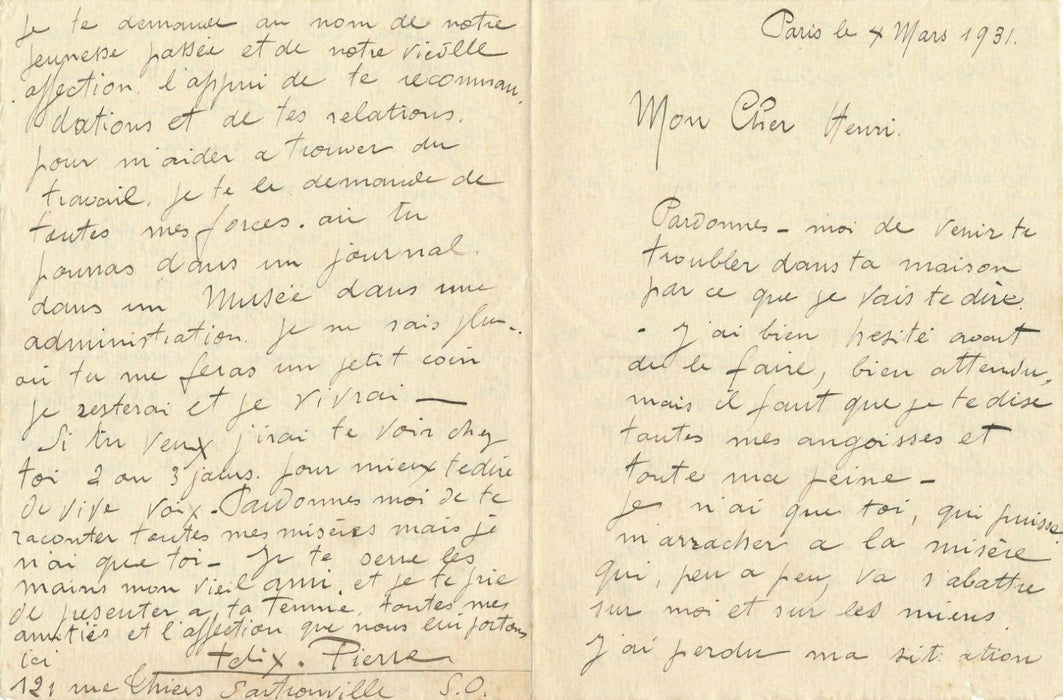 Paris le 4 Mars 1931.
Mon Cher Henri.
Pardonnes-moi de venir te
troubler dans ta maison
par ce que je vais te dire.
- J'ai bien hesité avant
de le faire, bien attendu,
mais il faut que je te dise
toutes mes angoisses et
toute ma peine -
Je n'ai que toi, qui puisse
m'arracher a la misère
qui, peu a peu, va s'abattre
sur moi et sur les miens.
J'ai perdu ma situation
Je te demande au nom de notre
jeunesse passée et de notre vieille
affection, l'appui de te recomman
dations et de tes relations.
pour m'aider a trouver du
travail, je te le demande de
toutes mes forces. où tu
pourras dans un journal.
dans un Musée dans une
administration. Je ne sais plus..
où tu me feras un petit coin
je resterai et je vivrai —
Si tu veux j'irai te voir chez
toi 2 ou 3 jours. pour mieux te dire
de vive voix. Pardonnes moi de te
raconter toutes mes misères mais je
n'ai que toi - Je te serre les
mains mon vieil ami, et je te prie
de presenter a ta femme, toutes mes
amitiés et l'affection que nous lui portons
ici
Felix. Pierre
121 rue Thiers Sartrouville S.O.